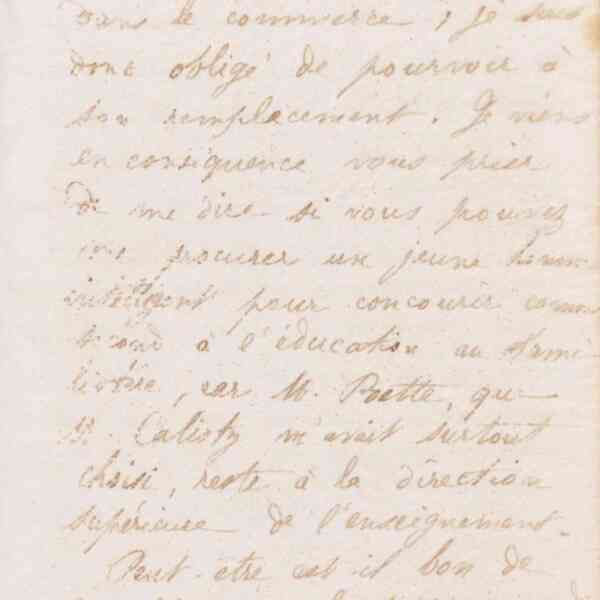 dans le commerce, je suis
donc obligé de pourvoir à
son remplacement. Je viens
en conséquence vous prier
de me dire si vous pouvez
me procurer un jeune homme
intelligent pour concourir comme
second à l'éducation au
car M. Poette, que
M. Calisty m'avait surtout
choisi, reste à la direction
supérieure de l'enseignement.
Peut-etre est-il bon de